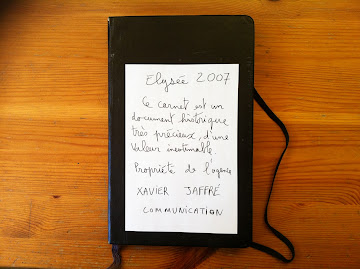 Elysée 2007
Ce carnet est un
document historique
très précieux, d'une
valeur inestimable.
Propriété de l'agence
XAVIER JAFFRÉ
COMMUNICATION